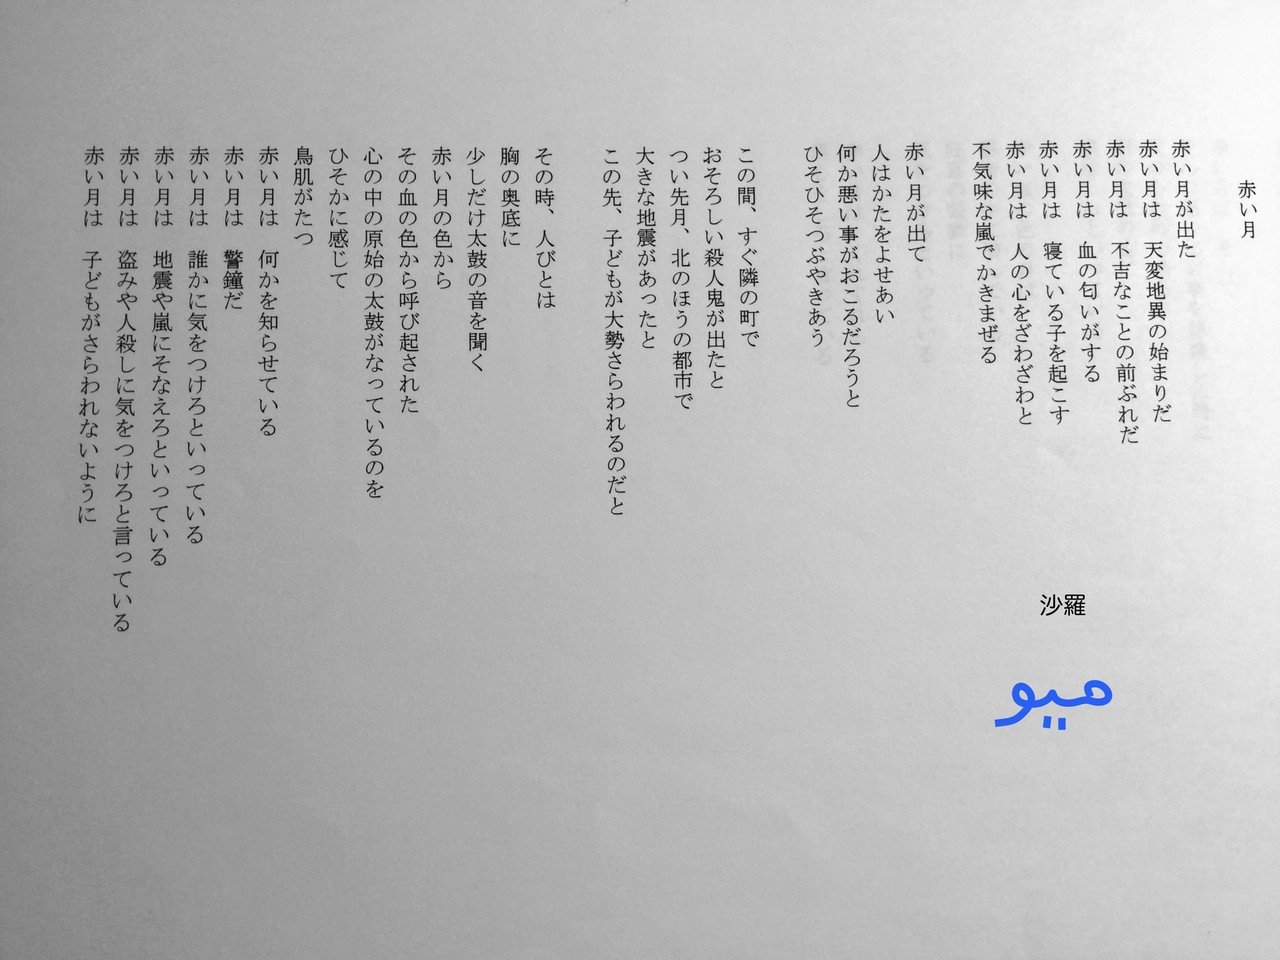 赤い月
赤い月が出た
赤い月は　天変地異の始まりだ
赤い月は　不吉なことの前ぶれだ
赤い月は　血の匂いがする
赤い月は　寝ている子を起こす
赤い月は　人の心をざわざわと
不気味な嵐でかきまぜる
赤い月が出て
人はかたをよせあい
何か悪い事がおこるだろうと
ひそひそつぶやきあう
この間、すぐ隣の町で
おそろしい殺人鬼が出たと
つい先月、北のほうの都市で
大きな地震があったと
この先、子どもが大勢さらわれるのだと
その時、人びとは
胸の奥底に
少しだけ太鼓の音を聞く
赤い月の色から
その血の色から呼び起された
心の中の原始の太鼓がなっているのを
ひそかに感じて
鳥肌がたつ
赤い月は　何かを知らせている
赤い月は　警鐘だ
赤い月は　誰かに気をつけろといっている
赤い月は　地震や嵐にそなえろといっている
赤い月は　盗みや人殺しに気をつけろと言っている
赤い月は　子どもがさらわれないように
沙羅
ميو